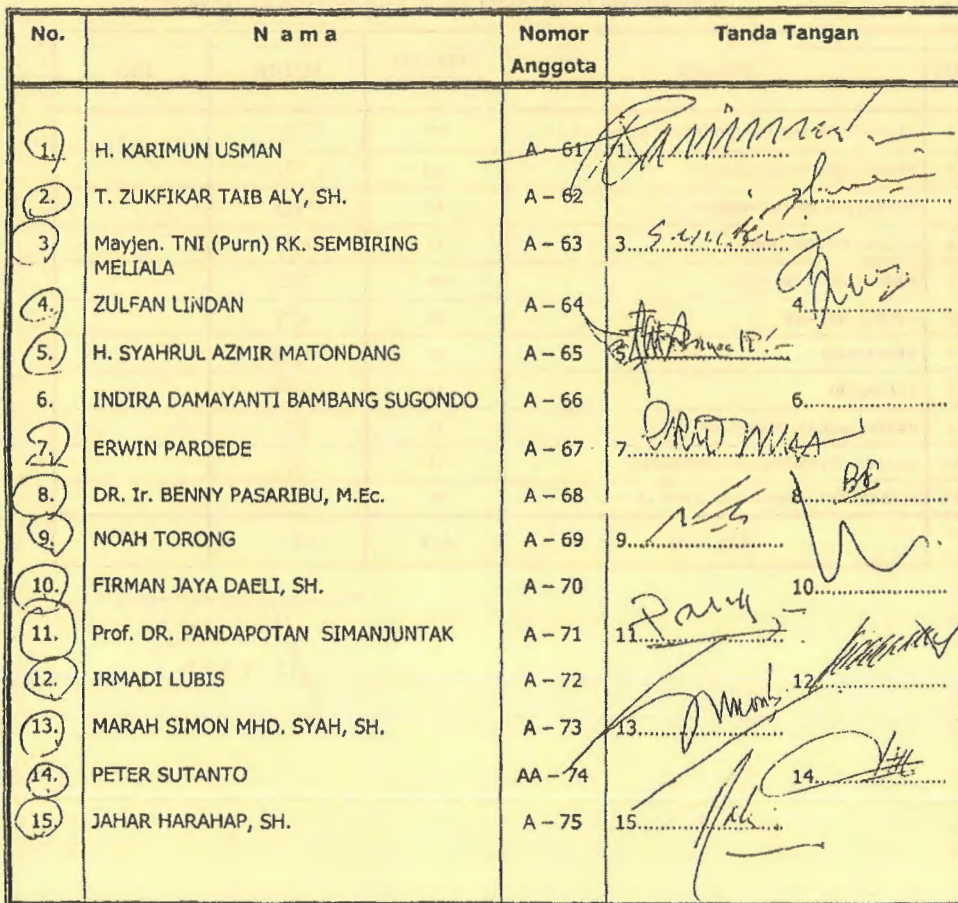 No. N a m a Nomor Anggota Tanda Tangan
1. H. KARIMUN USMAN A – 61 1.
2. T. ZUKFIKAR TAIB ALY, SH. A – 62 2.
3. Mayjen. TNI (Purn) RK. SEMBIRING MELIALA A – 63 3.
4. ZULFAN LINDAN A – 64 4.
5. H. SYAHRUL AZMIR MATONDANG A – 65 5.
6. INDIRA DAMAYANTI BAMBANG SUGONDO A – 66 6.
7. ERWIN PARDEDE A – 67 7.
8. DR. Ir. BENNY PASARIBU, M.Ec. A – 68 8.
9. NOAH TORONG A – 69 9.
10. FIRMAN JAYA DAELI, SH. A – 70 10.
11. Prof. DR. PANDAPOTAN SIMANJUNTAK A – 71 11.
12. IRMADI LUBIS A – 72 12.
13. MARAH SIMON MHD. SYAH, SH. A – 73 13.
14. PETER SUTANTO AA – 74 14.
15. JAHAR HARAHAP, SH. A – 75 15.